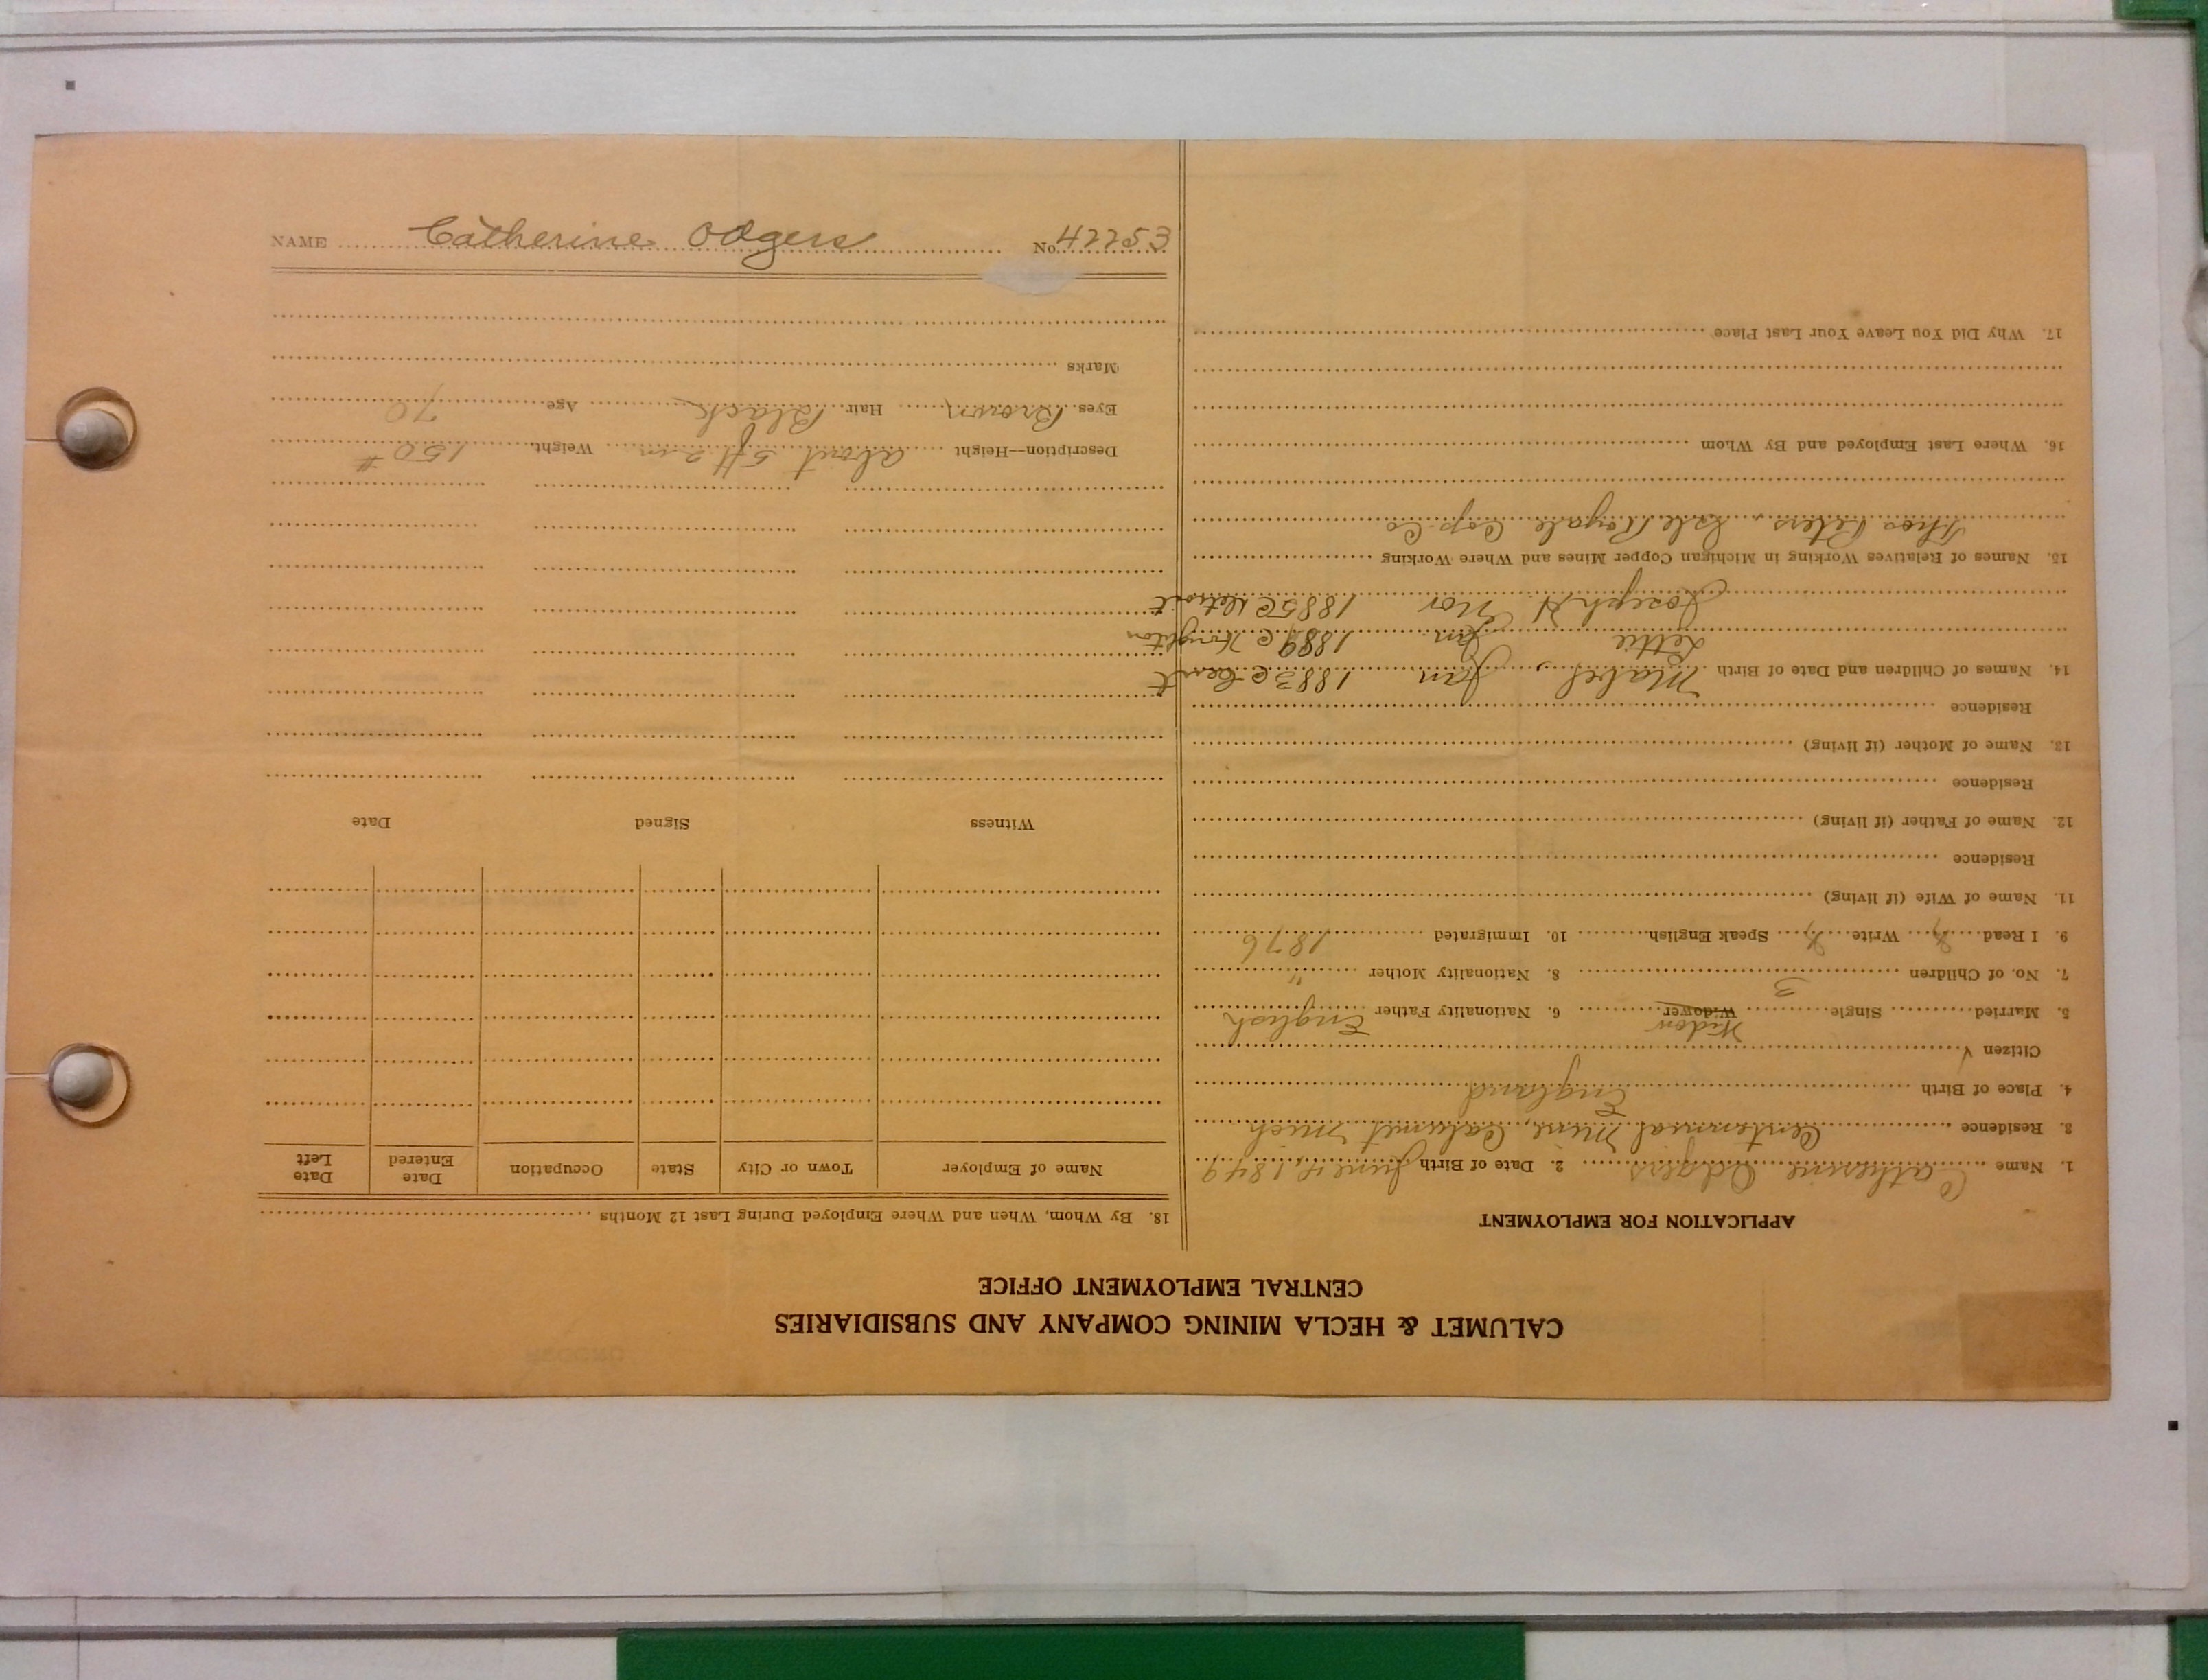 CALUMET & HECLA MINING COMPANY AND SUBSIDIARIES
CENTRAL EMPLOYMENT OFFICE
APPLICATION FOR EMPLOYMENT
1. Name Catherine Odgers 2. Date of Birth June 4, 1849
3. Residence Centennial Mine, Calumet Mich
4. Place of Birth England
Citizen √
Widow
5. Married Single Widower 6. Nationality Father English
7. No. of Children 3 8. Nationality Mother "
9. I Read Write Speak English 10. Immigrated 1876
11. Name of Wife (if living)
Residence
12. Name of Father (if living)
Residence
13. Name of Mother (if living)
Residence
14. Names of Children and Date of Birth Mabel, Jan 1883 @ Cent
Lettie Jan 1889 @ Houghton
Joseph H Nov 1885 @ Detroit
15. Names of Relatives Working in Michigan Copper Mines and Where Working
Thos Peters, Isle Royale Cop. Co
16. Where Last Employed and By Whom
17. Why Did You Leave Your Last Place
18. By Whom, When and Where Employed During Last 12 Months
Name of Employer Town or City State Occupation Date Entered Date Left
Witness Signed Date
Description—Height about 5 ft 2 in Weight 150 #
Eyes Brown Hair Black Age 70
Marks
NAME Catherine Odgers No. 42253